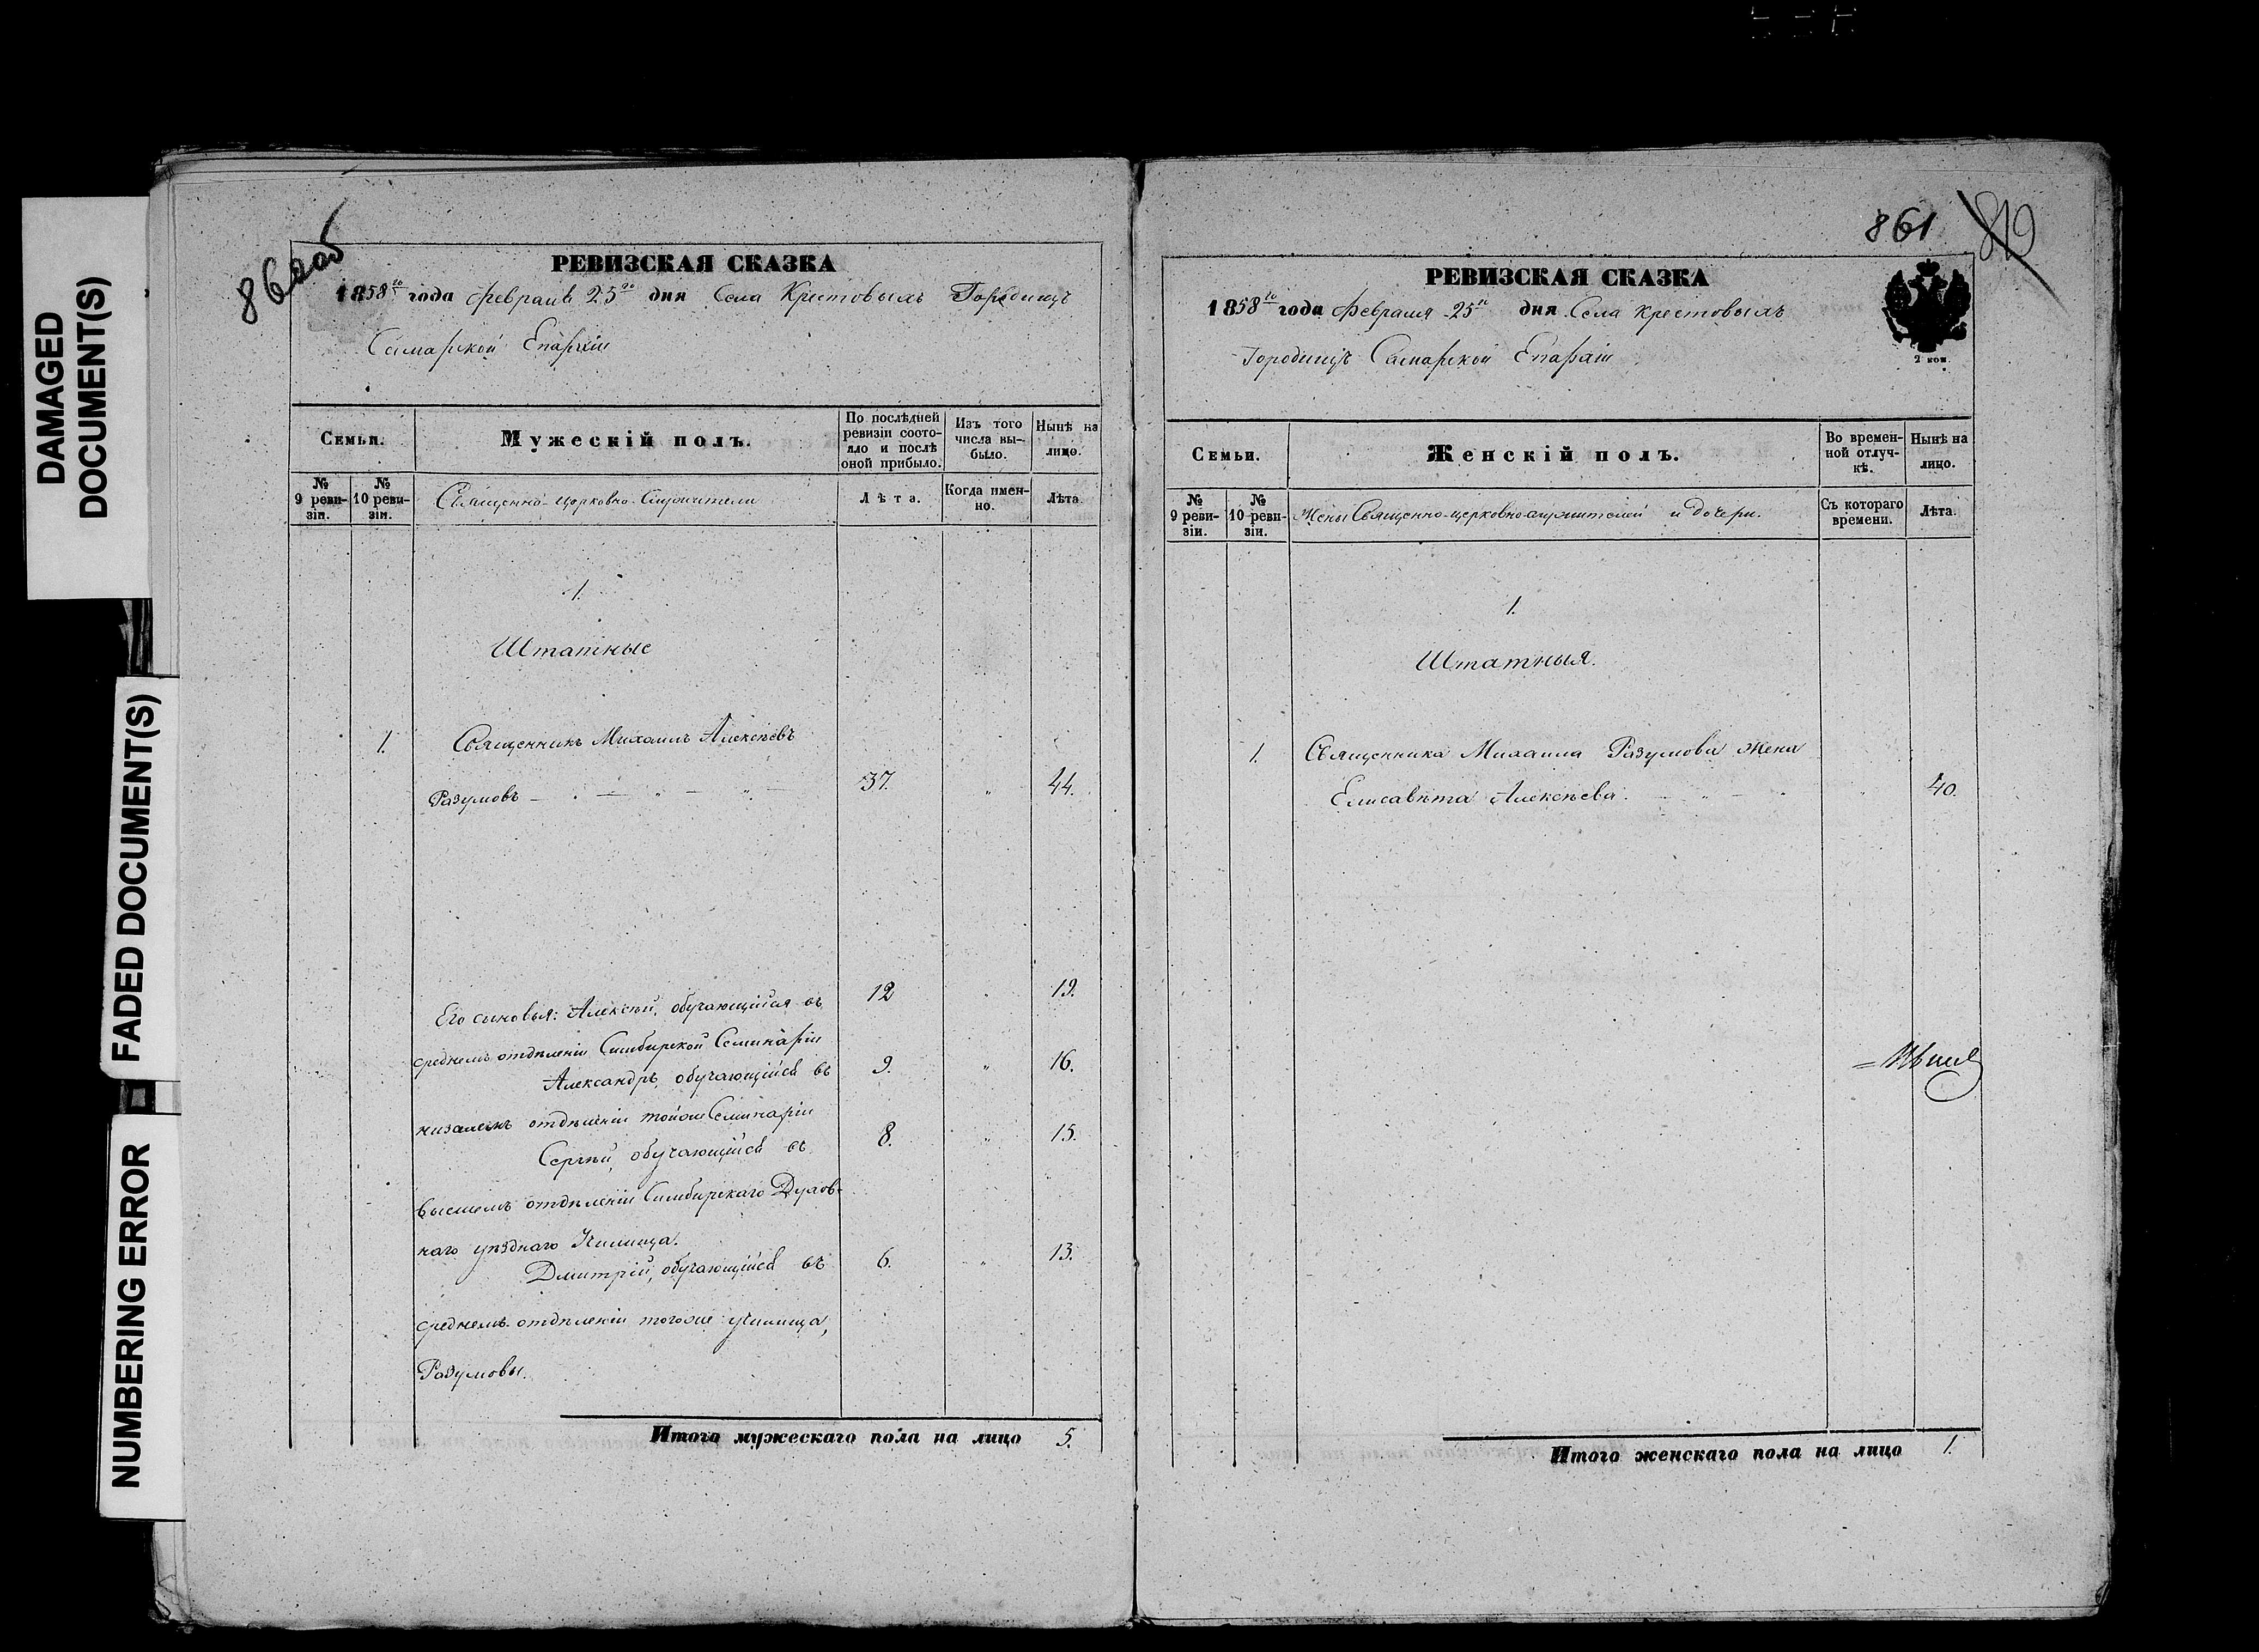 DAMAGED
DOCUMENT(S)
FADED DOCUMENT(S)
NUMBERING ERROR
860 об
РЕВИЗСКАЯ СКАЗКА
1858го года Февраля 25го дня Села Крестовыхъ Городищъ
Самарской Епархіи
Семьи.
Мужескій полъ.
По послѣдней ревизіи состо-
яло и послѣ оной прибыло.
Изъ того числа вы-
было.
Нынѣ на лицо.
№ 9 реви-
зіи.
№ 10 реви-
зіи.
Священно-церковно-Служители
Лѣта.
Когда имен-
но.
Лѣта.
1.
Штатные
1. Священникъ Михаилъ Алексѣевъ
Разумовъ 37. " 44.
Его сыновья: Алексѣй, обучающійся въ 12 " 19.
среднемъ отдѣленіи Симбирской Семинаріи
Александръ, обучающійся въ 9. " 16.
низшемъ отдѣленіи тойже Семинаріи
Сергѣй, обучающійся въ 8. " 15.
высшемъ отдѣленіи Симбирскаго Духов-
наго уѣзднаго Училища.
Дмитрій, обучающійся въ 6. " 13.
среднемъ отдѣленіи тогоже училища,
Разумовы.
Итого мужескаго пола на лицо 5.
861 819
РЕВИЗСКАЯ СКАЗКА
1858го года Февраля 25го дня Села Крестовыхъ
Городищъ Самарской Епархіи
2 коп.
Семьи.
Женскій полъ.
Во времен-
ной отлуч-
кѣ.
Нынѣ на лицо.
№ 9 реви-
зіи.
№ 10 реви-
зіи.
Жены Священно-церковнослужителей и дочери.
Съ котораго времени.
Лѣта.
1.
Штатныя.
1. Священника Михаила Разумова жена
Елисавета Алексѣева. " 40.
Итого женскаго пола на лицо 1.